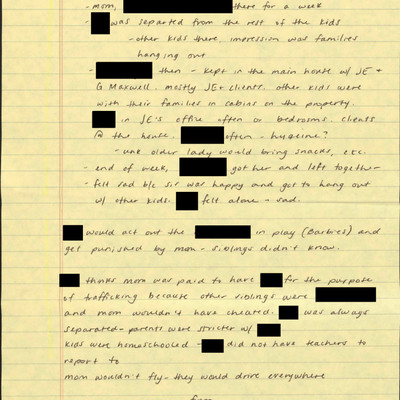 - mom, there for a week
- was separated from the rest of the kids
- other kids there, impression was families
hanging out
- then - kept in the main house w/ JE +
G Maxwell. mostly JE + clients. other kids were
with their families in cabins on the property.
in JE's office often or bedrooms. clients
@ the house. often - hygeine?
- unk older lady would bring snacks, etc.
- end of week, got her and left together
- felt sad b/c sis was happy and got to hang out
w/ other kids. felt alone - sad.
would act out the in play (Barbies) and
get punished by mom - siblings didn't know.
thinks mom was paid to have for the purpose
of trafficking because other siblings were
and mom wouldn't have cheated. was always
separated - parents were stricter w/
kids were homeschooled - did not have teachers to
report to
mom wouldn't fly - they would drive everywhere